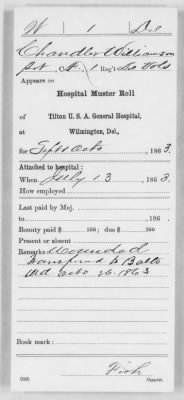 W 1 Del
Chandler Williamson
Pvt, Co. A, 1 Reg't Del Vols
Appears on
Hospital Muster Roll
of Tilton U. S. A. General Hospital,
at Wilmington, Del.,
for Sept & Octo, 1863.
Attached to hospital:
When July 13, 1863.
How employed
Last paid by Maj.
to , 186 .
Bounty paid $ 100; due $ 100
Present or absent
Remarks: Wounded
Transferred to Balto
Md Octo 26. 1863
Book mark:
Fish
Copyist.